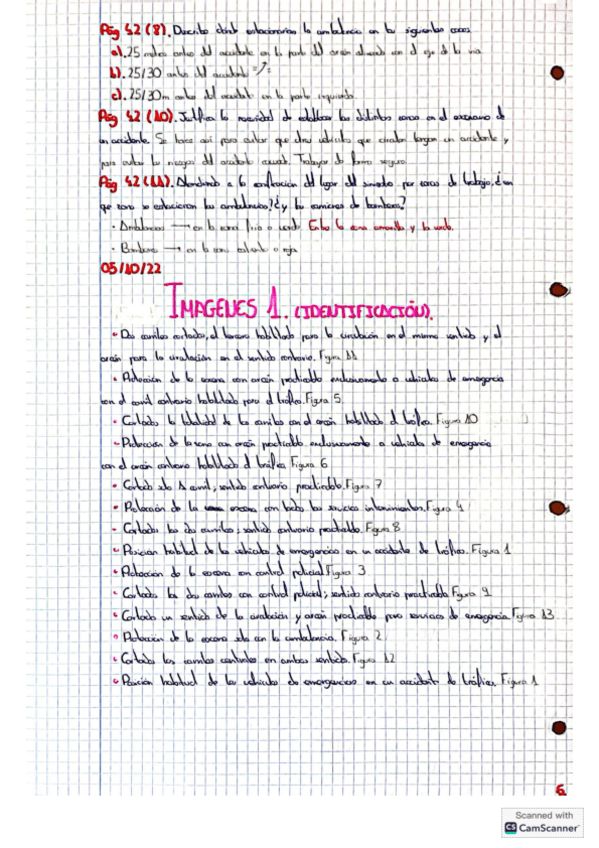 Pág 42 (8). Describe dónde estacionarías la ambulancia en los siguientes casos
a). 25 metros antes del accidente en la parte del arcén alineado con el eje de la vía.
b). 25/30 antes del accidente
c). 25/30m antes del accidente en la parte izquierda.
Pág 42 (10). Justifica la necesidad de establecer las distintas zonas en el escenario de
un accidente. Se hace así para evitar que otros vehículos que circulan tengan un accidente y
para evitar los riesgos del accidente causal. Trabajar de forma segura.
Pág 42 (11). Atendiendo a la zonificación del lugar del siniestro por zonas de trabajo, ¿en
que zona se estacionan las ambulancias? ¿y los camiones de bomberos?
· Ambulancias → en la zona fría o verde. Entre la zona amarilla y la verde.
· Bomberos → en la zona caliente o roja
05/10/22
IMAGENES 1. (IDENTIFICACIÓN).
• Dos carriles cortados, el tercero habilitado para la circulación en el mismo sentido y el
arcén para la circulación en el sentido contrario. Figura 11
• Protección de la escena con arcén practicable exclusivamente a vehículos de emergencia
con el carril contrario habilitado para el tráfico. Figura 5.
• Cortados la totalidad de los carriles con el arcén habilitado al tráfico. Figura 10
• Protección de la zona con arcén practicable exclusivamente a vehículos de emergencia
con el arcén contrario habilitado al tráfico. Figura 6
• Cortado solo 1 carril, sentido contrario practicable. Figura 7
• Protección de la escena con todos los servicios intervinientes. Figura 4
- Cortados los dos carriles; sentido contrario practicable. Figura 8
• Posición habitual de los vehículos de emergencias en un accidente de tráfico. Figura 1
• Protección de la escena con control policial Figura 3
• Cortados los dos carriles con control policial; sentido contrario practicable Figura 9
• Cortado un sentido de la circulación y arcén practicable para servicios de emergencia Figura 13
• Protección de la escena solo con la ambulancia. Figura 2
• Cortados los carriles centrales en ambos sentidos. Figura 12
• Posición habitual de los vehículos de emergencias en un accidente de tráfico. Figura 1
6
Scanned with
CS CamScanner